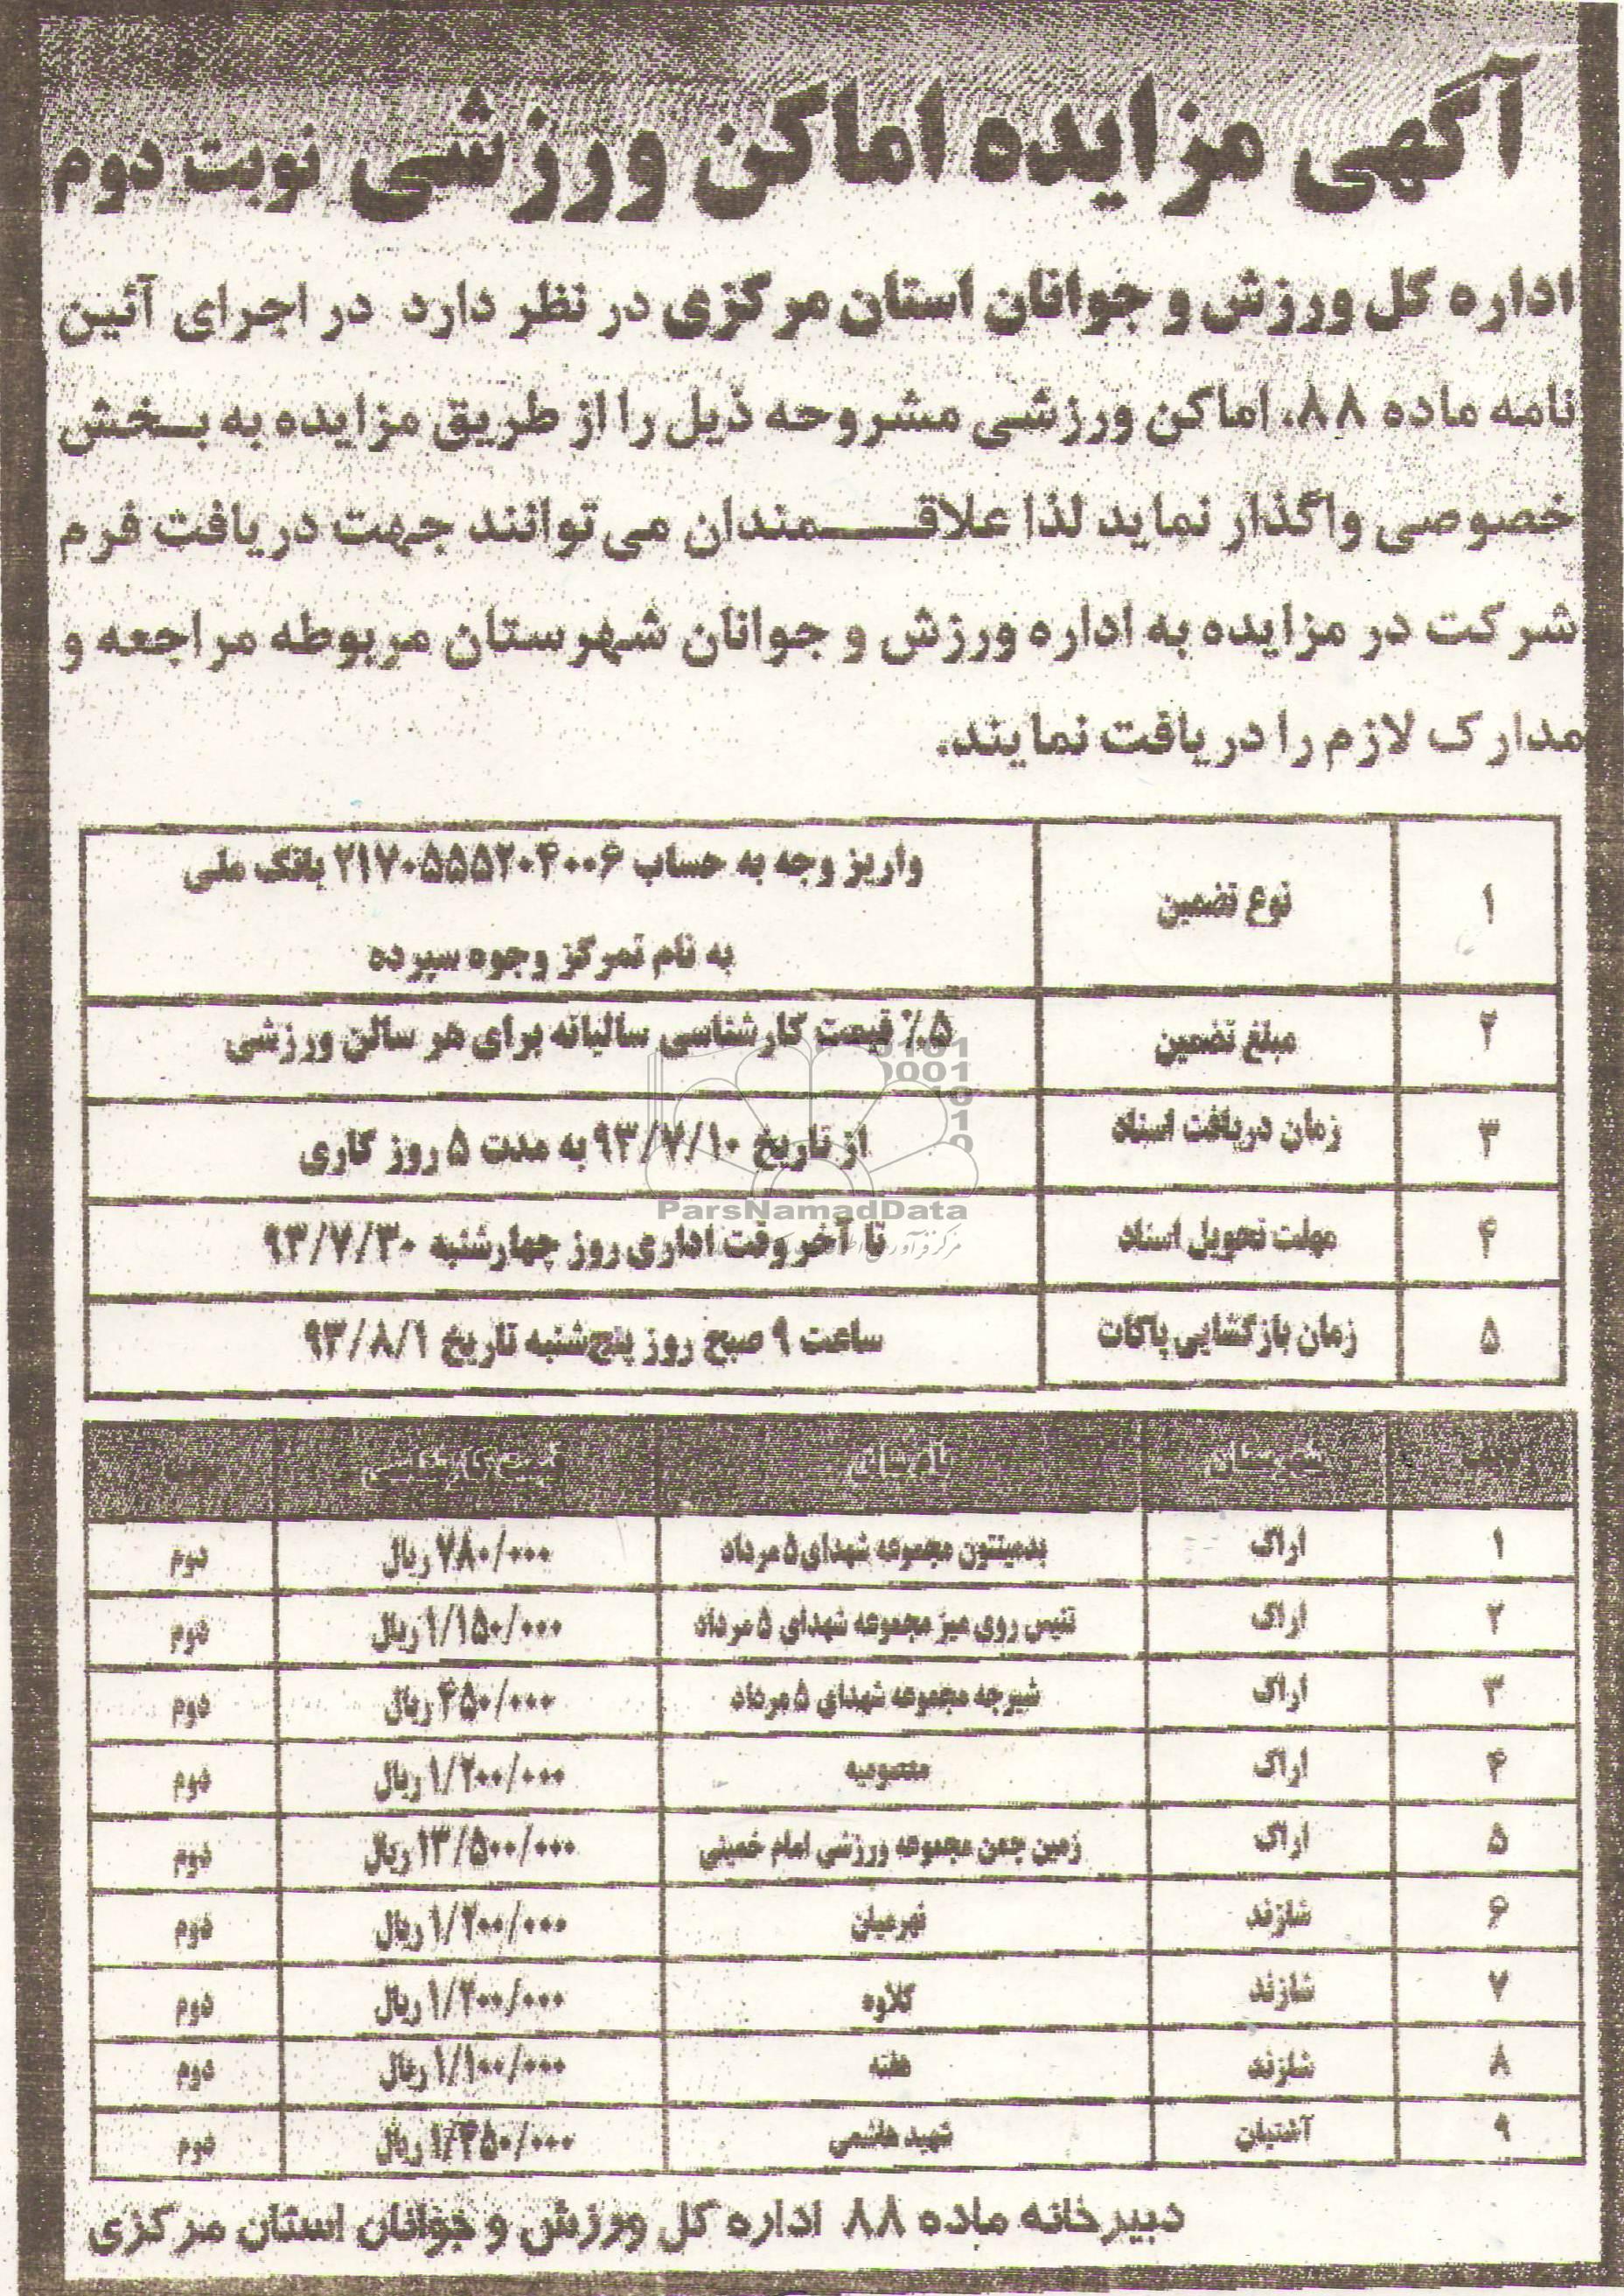 آگهی مزایده اماکن ورزشی نوبت دوم
اداره کل ورزش و جوانان استان مرکزی در نظر دارد در اجرای آئین
نامه ماده ۸۸، اماکن ورزشی مشروحه ذیل را از طریق مزایده به بخش
خصوصی واگذار نماید لذا علاقـــمندان می‌توانند جهت دریافت فرم
شرکت در مزایده به اداره ورزش و جوانان شهرستان مربوطه مراجعه و
مدارک لازم را دریافت نمایند.
۱ نوع تضمین واریز وجه به حساب ۲۱۷۰۵۵۵۲۰۴۰۰۶ بانک ملی
به نام تمرکز وجوه سپرده
۲ مبلغ تضمین ۵٪ قیمت کارشناسی سالیانه برای هر سالن ورزشی
۳ زمان دریافت اسناد از تاریخ ۹۳/۷/۱۰ به مدت ۵ روز کاری
۴ مهلت تحویل اسناد تا آخر وقت اداری روز چهارشنبه ۹۳/۷/۳۰
۵ زمان بازگشایی پاکات ساعت ۹ صبح روز پنج‌شنبه تاریخ ۹۳/۸/۱
ParsNamadData
ردیف شهرستان نام سالن قیمت کارشناسی
۱ اراک بدمینتون مجموعه شهدای ۵ مرداد ۷۸۰/۰۰۰ ریال دوم
۲ اراک تنیس روی میز مجموعه شهدای ۵ مرداد ۱/۱۵۰/۰۰۰ ریال دوم
۳ اراک شیرجه مجموعه شهدای ۵ مرداد ۴۵۰/۰۰۰ ریال دوم
۴ اراک معصومیه ۱/۲۰۰/۰۰۰ ریال دوم
۵ اراک زمین چمن مجموعه ورزشی امام خمینی ۱۳/۵۰۰/۰۰۰ ریال دوم
۶ شازند نهرمیان ۱/۲۰۰/۰۰۰ ریال دوم
۷ شازند کلاوه ۱/۲۰۰/۰۰۰ ریال دوم
۸ شازند هفته ۱/۱۰۰/۰۰۰ ریال دوم
۹ آشتیان شهید هاشمی ۱/۳۵۰/۰۰۰ ریال دوم
دبیرخانه ماده ۸۸ اداره کل ورزش و جوانان استان مرکزی